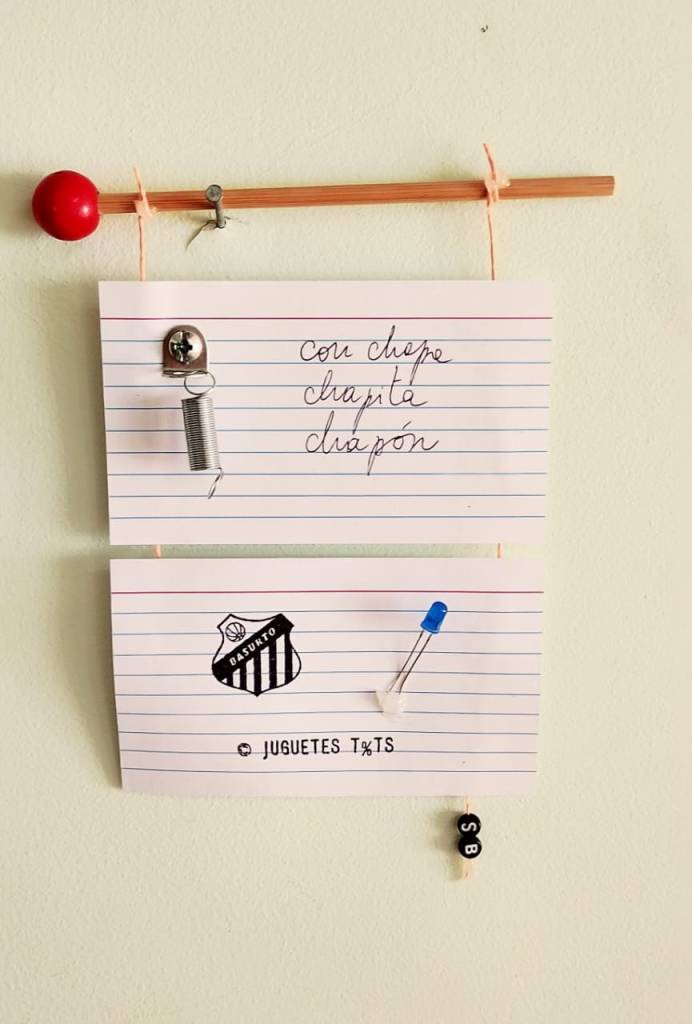 con chapa
chapita
chapón
BASURTO
© JUGUETES T%TS
S
B